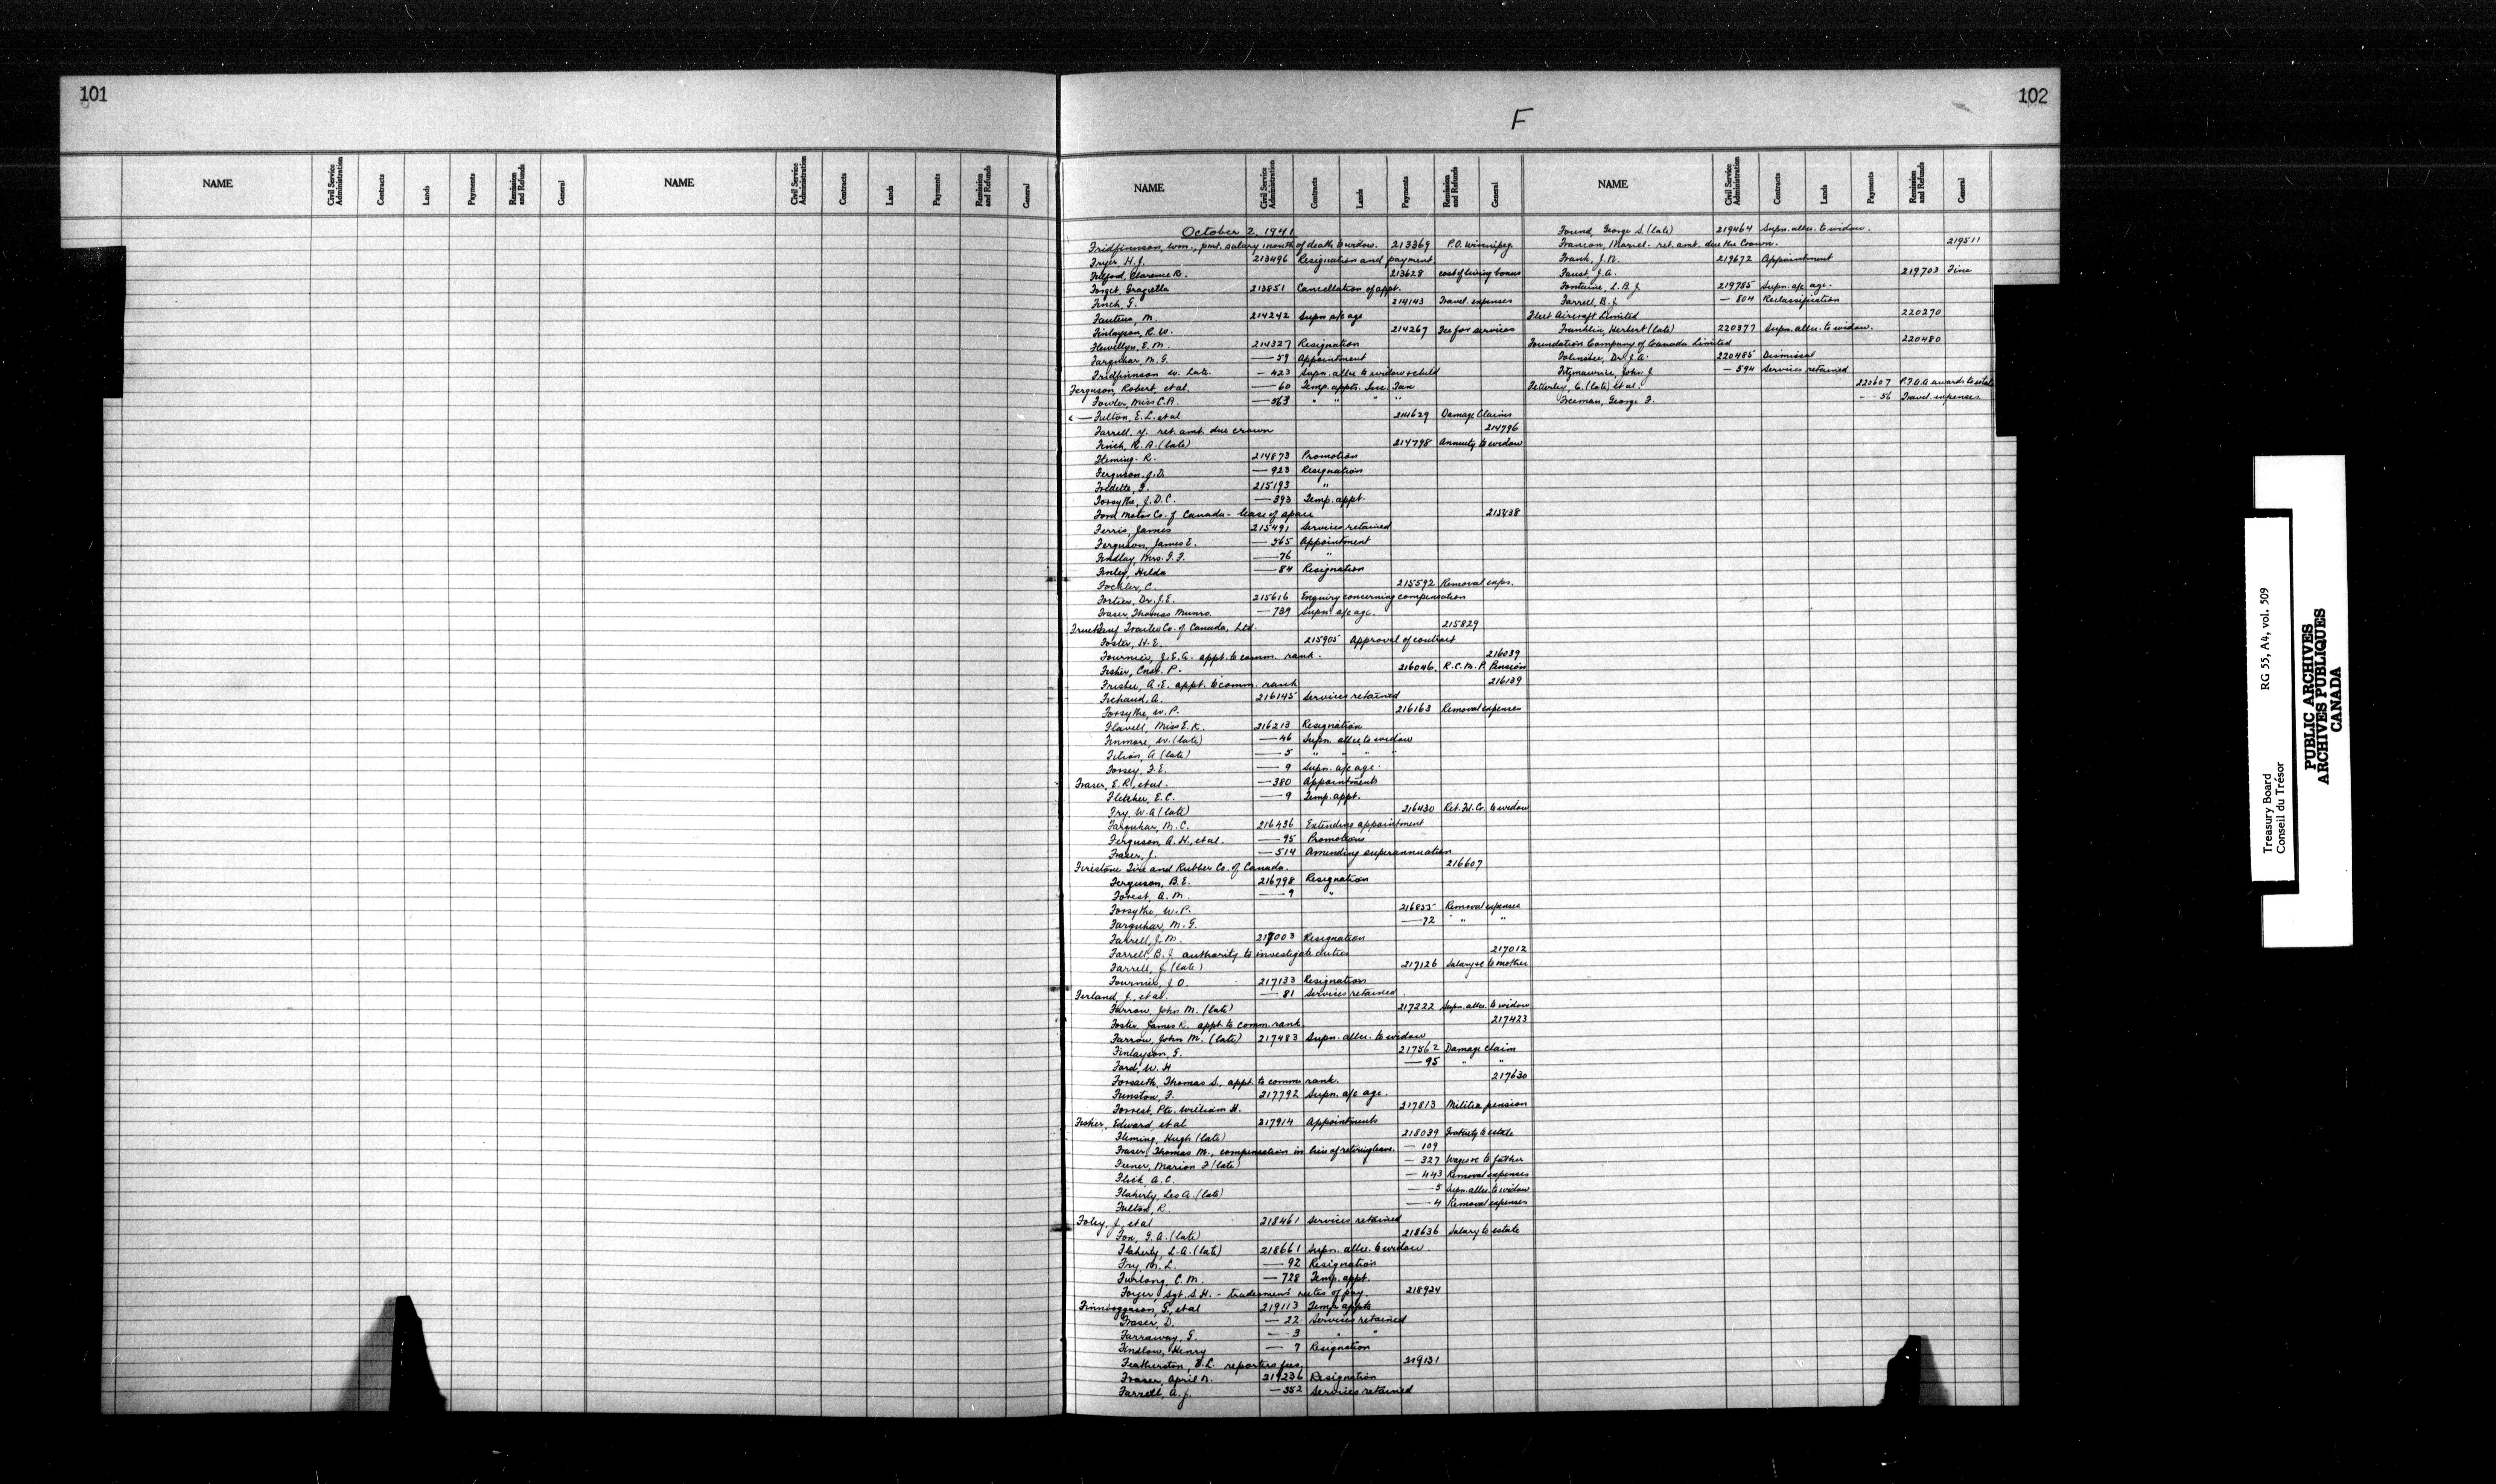 101
NAME Civil Service Administration Contracts Lands Payments Remission and Refunds General NAME Civil Service Administration Contracts Lands Payments Remission and Refunds General
102
F
NAME Civil Service Administration Contracts Lands Payments Remission and Refunds General NAME Civil Service Administration Contracts Lands Payments Remission and Refunds General
October 2, 1941
Fridfinnson, Wm., pmt. salary month of death to widow. 213369 P.O. Winnipeg
Fryer, H.J. 213496 Resignation and payment
Clarence R. 213628 cost of living bonus
Forget, Graziella 213851 Cancellation of appt.
Finch, G. 214143 Travel. expenses
M. 214242 Supn a/c age
Finlayson, R.W. 214267 Fee for services
Flewellyn, E.M. 214327 Resignation
Farquhar, M.G. — 59 Appointment
Fridfinnson W. Late. — 423 Supn. allce to widow & child
Ferguson, Robert, et al. — 60 Temp. appts. Inc. Tax
Fowler, Miss C.A. — 563 " " " "
Fulton, E.L. et al 214629 Damage Claims
Farrell, Y. ret. amt. due crown 214796
Finch, R.A. (late) 214798 Annuity to widow
Fleming, R. 214873 Promotion
Ferguson, J.D. — 923 Resignation
Fredette, F. 215193 "
Forsythe, J.D.C. — 393 Temp. appt.
Ford Motor Co. of Canada - lease of space 215438
Ferris, James 215491 Services retained
Ferguson, James E. — 565 Appointment
Findlay, Mrs. G.F. — 76 "
Finley, Hilda — 84 Resignation
C. 215592 Removal exps.
Fortier, Dr. J.E. 215616 Enquiry concerning compensation
Fraser, Thomas Munro. — 739 Supn. a/c age.
Fruehauf Trailer Co. of Canada, Ltd. 215829
Foster, H.E. 215905 Approval of contract
Fournier, J.E.A. appt. to comm. rank. 216039
Fisher, Const. P. 216046. R.C.M.P. Pension
A.E. appt. to comm. rank 216139
A. 216145 Services retained
Forsythe, W.P. 216163 Removal expenses
Flavell, Miss E.K. 216213 Resignation
Finmore, W. (late) — 46 Supn. allce. to widow
Filion, A (late) — 5 " " " "
Forsey, F.E. — 9 Supn. a/c age.
Fraser, E.R., et al. — 380 Appointments
Fletcher, E.C. — 9 Temp. appt.
Fry, W.A (late) 216430 Ret. Fd. Co. to widow
Farquhar, M.C. 216436 Extending appointment
Ferguson, A.H., et al. — 95 Promotions
Fraser, J. — 514 Amending superannuation
Firestone Tire and Rubber Co. of Canada. 216607
Ferguson, B.E. 216798 Resignation
Forest, A.M. — 9 "
Forsythe, W.P. 216855 Removal expenses
Farquhar, M.G. — 72 " "
Farrell, J.M. 217003 Resignation
Farrell, B.J. authority to investigate duties 217012
Farrell, J. (late) 217126 Salary &c to mother
Fournier, J.O. 217133 Resignation
Ferland, J., et al. — 81 Services retained
Farrow, John M. (late) 217222 Supn. allce. to widow
Foster, James R. appt. to comm. rank 217423
Farrow, John M. (late) 217483 Supn. allce. to widow
Finlayson, G. 217562 Damage Claim
Ford, W.H — 95 " "
Forsaith, Thomas S., appt. to comm. rank. 217630
Funston, F. 217792 Supn. a/c age.
Forrest, Pte. William H. 217813 Militia pension
Fisher, Edward, et al 217914 Appointments
Fleming, Hugh (late) 218039 Gratuity to estate
Fraser, Thomas M., compensation in lieu of retiring leave. — 109
Marion F (late) — 327 Wages &c to father
Flick, A.C. — 443 Removal expenses
Flaherty, Leo A. (late) — 5 Supn. allce. to widow
Fulton, R. — 4 Removal expenses
Foley, J., et al 218461 Services retained
Fox, G.A. (late) 218636 Salary to estate
Flaherty, L.A. (late) 218661 Supn. allce. to widow
Fry, M.L. — 92 Resignation
Furlong, C.M. — 728 Temp. appt.
Sgt. S.H. - tradesmen's rates of pay. 218924
Finnbogason, G., et al 219113 Temp appts
Fraser, D. — 22 Services retained
Farraway, G. — 3 " "
Findlow, Henry — 7 Resignation
Featherston, E.L. reporters fees, 219131
Fraser, April N. 219236 Resignation
Farrell, A.J. — 352 Services retained
Found, George S. (late) 219464 Supn. allce. to widow.
Francon, Marcel- ret. amt. due the Crown. 219511
Frank, J.N. 219672 Appointment
Faust, J.A. 219703 Fine
Fontaine, L.B.J 219785 Supn. a/c age.
Farrell, B.J. — 804 Reclassification
Fleet Aircraft Limited 220270
Franklin, Herbert (late) 220377 Supn. allce. to widow.
Foundation Company of Canada Limited 220480
Folinsbee, Dr. J.A. 220485 Dismissal
Fitzmaurice, John J. — 594 Services retained
Fetterley, C. (late) et al. 220607 P.F.A.A awards to estate
Freeman, George F. — 56 Travel. expenses.
Treasury Board RG 55, A4, vol. 509
Conseil du Trésor
PUBLIC ARCHIVES
ARCHIVES PUBLIQUES
CANADA